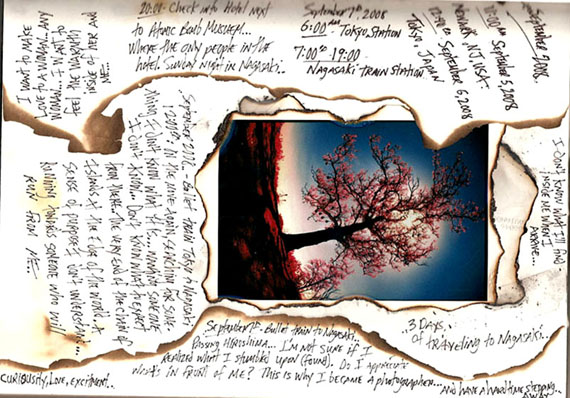 I want to make
love to a woman... any
woman... I want to
feel the warmth
inside of her and
me...
20:01 - Check into Hotel next
to Atomic Bomb Museum...
Where the only people in the
hotel Sunday night in Nagasaki..
September 7th, 2008
6:00 AM - Tokyo Station
7:00 - 19:00
Nagasaki Train Station
September 2008.
10:00 AM September 5, 2008
Newark, NJ, USA.
September 6, 2008
Tokyo, Japan
I don't know what I'll find
inside me when I
arrive...
September 7th - Bullet train Tokyo to Nagasaki
I don't know what it is...
I don't know... Don't know what to expect
from there - the very end of the chain of
islands at the edge of the world. A
sense of purpose
Running towards someone who will
run from me...
September 7th - Bullet train to Nagasaki...
Passing Hiroshima... I'm not sure if I
realized what I stumbled upon (found). Do I appreciate
what's in front of me? This is why I became a photographer...
3 Days,
of traveling to Nagasaki..
and have a hard time stepping
away
Curiousity, Love, excitement..